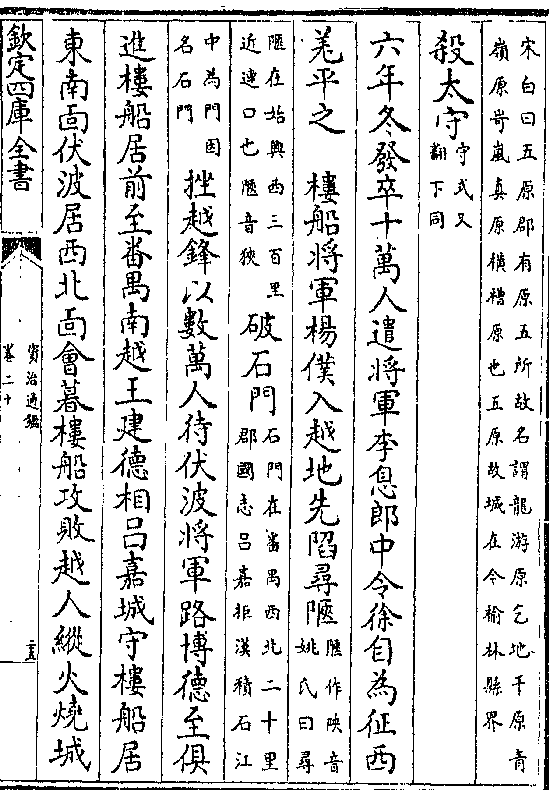 宋白曰五原郡有原五所故名謂龍游原乞地千原青
嶺原岢嵐真原橫槽原也五原故城在今榆林縣界
殺太守守式又
翻下同
六年冬發卒十萬人遣將軍李息郎中令徐自為征西
羌平之　樓船將軍楊僕入越地先陷尋陿陿作映音
姚氏曰尋
陿在始興西三百里
近連口也陿音狹
破石門石門在番禺西北二十里
郡國志吕嘉拒漢積石江
中為門因
名石門
挫越鋒以數萬人待伏波將軍路博德至俱
進樓船居前至番禺南越王建德相吕嘉城守樓船居
東南面伏波居西北面會暮樓船攻敗越人縱火燒城
欽定四庫全書
資治通鑑
卷二十